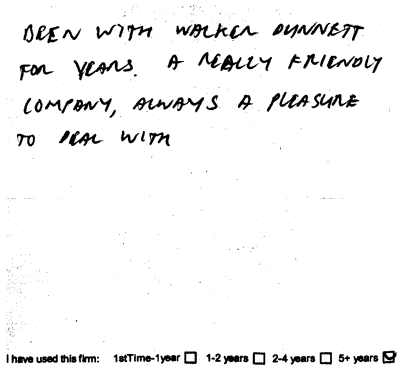 BEEN WITH WALKER DUNNETT
FOR YEARS. A REALLY FRIENDLY
COMPANY, ALWAYS A PLEASURE
TO DEAL WITH
I have used this firm: 1stTime-1year ☐ 1-2 years ☐ 2-4 years ☐ 5+ years ☑